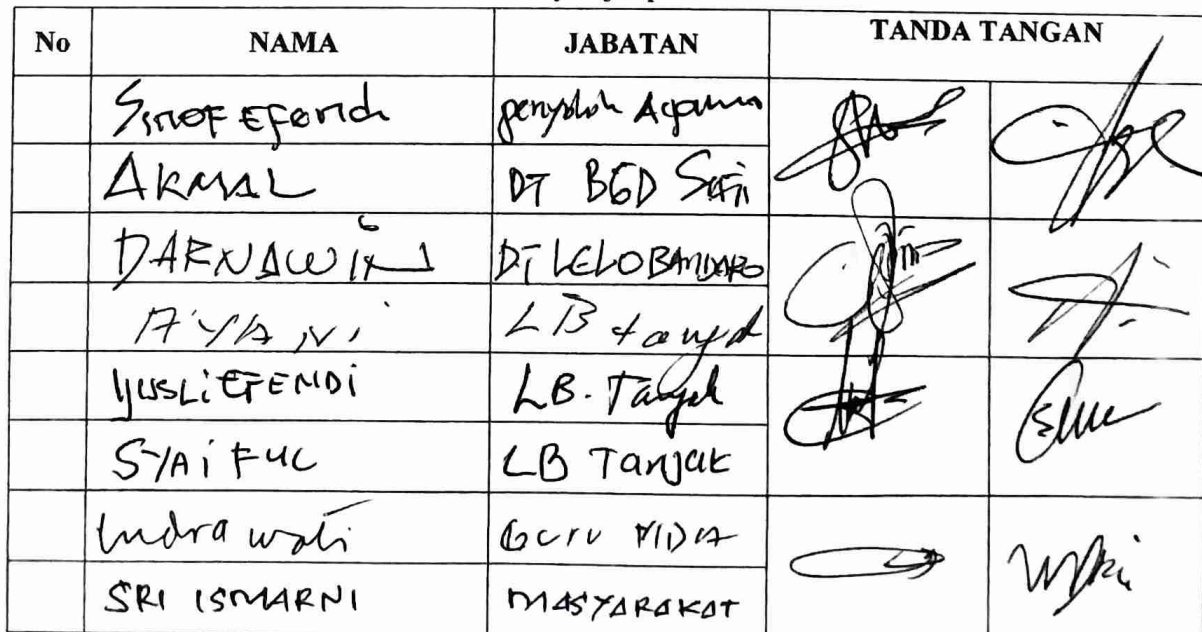 No NAMA JABATAN TANDA TANGAN
Efendi penyuluh Agama
AKMAL DT BGD
DARNAWIN DT LELO BANDARO
A'YANI LB
YUSLi EFENDi LB. Tanjak
SYAiFUL LB Tanjak
Indra wati Guru MDA
SRI ISMARNI MASYARAKAT